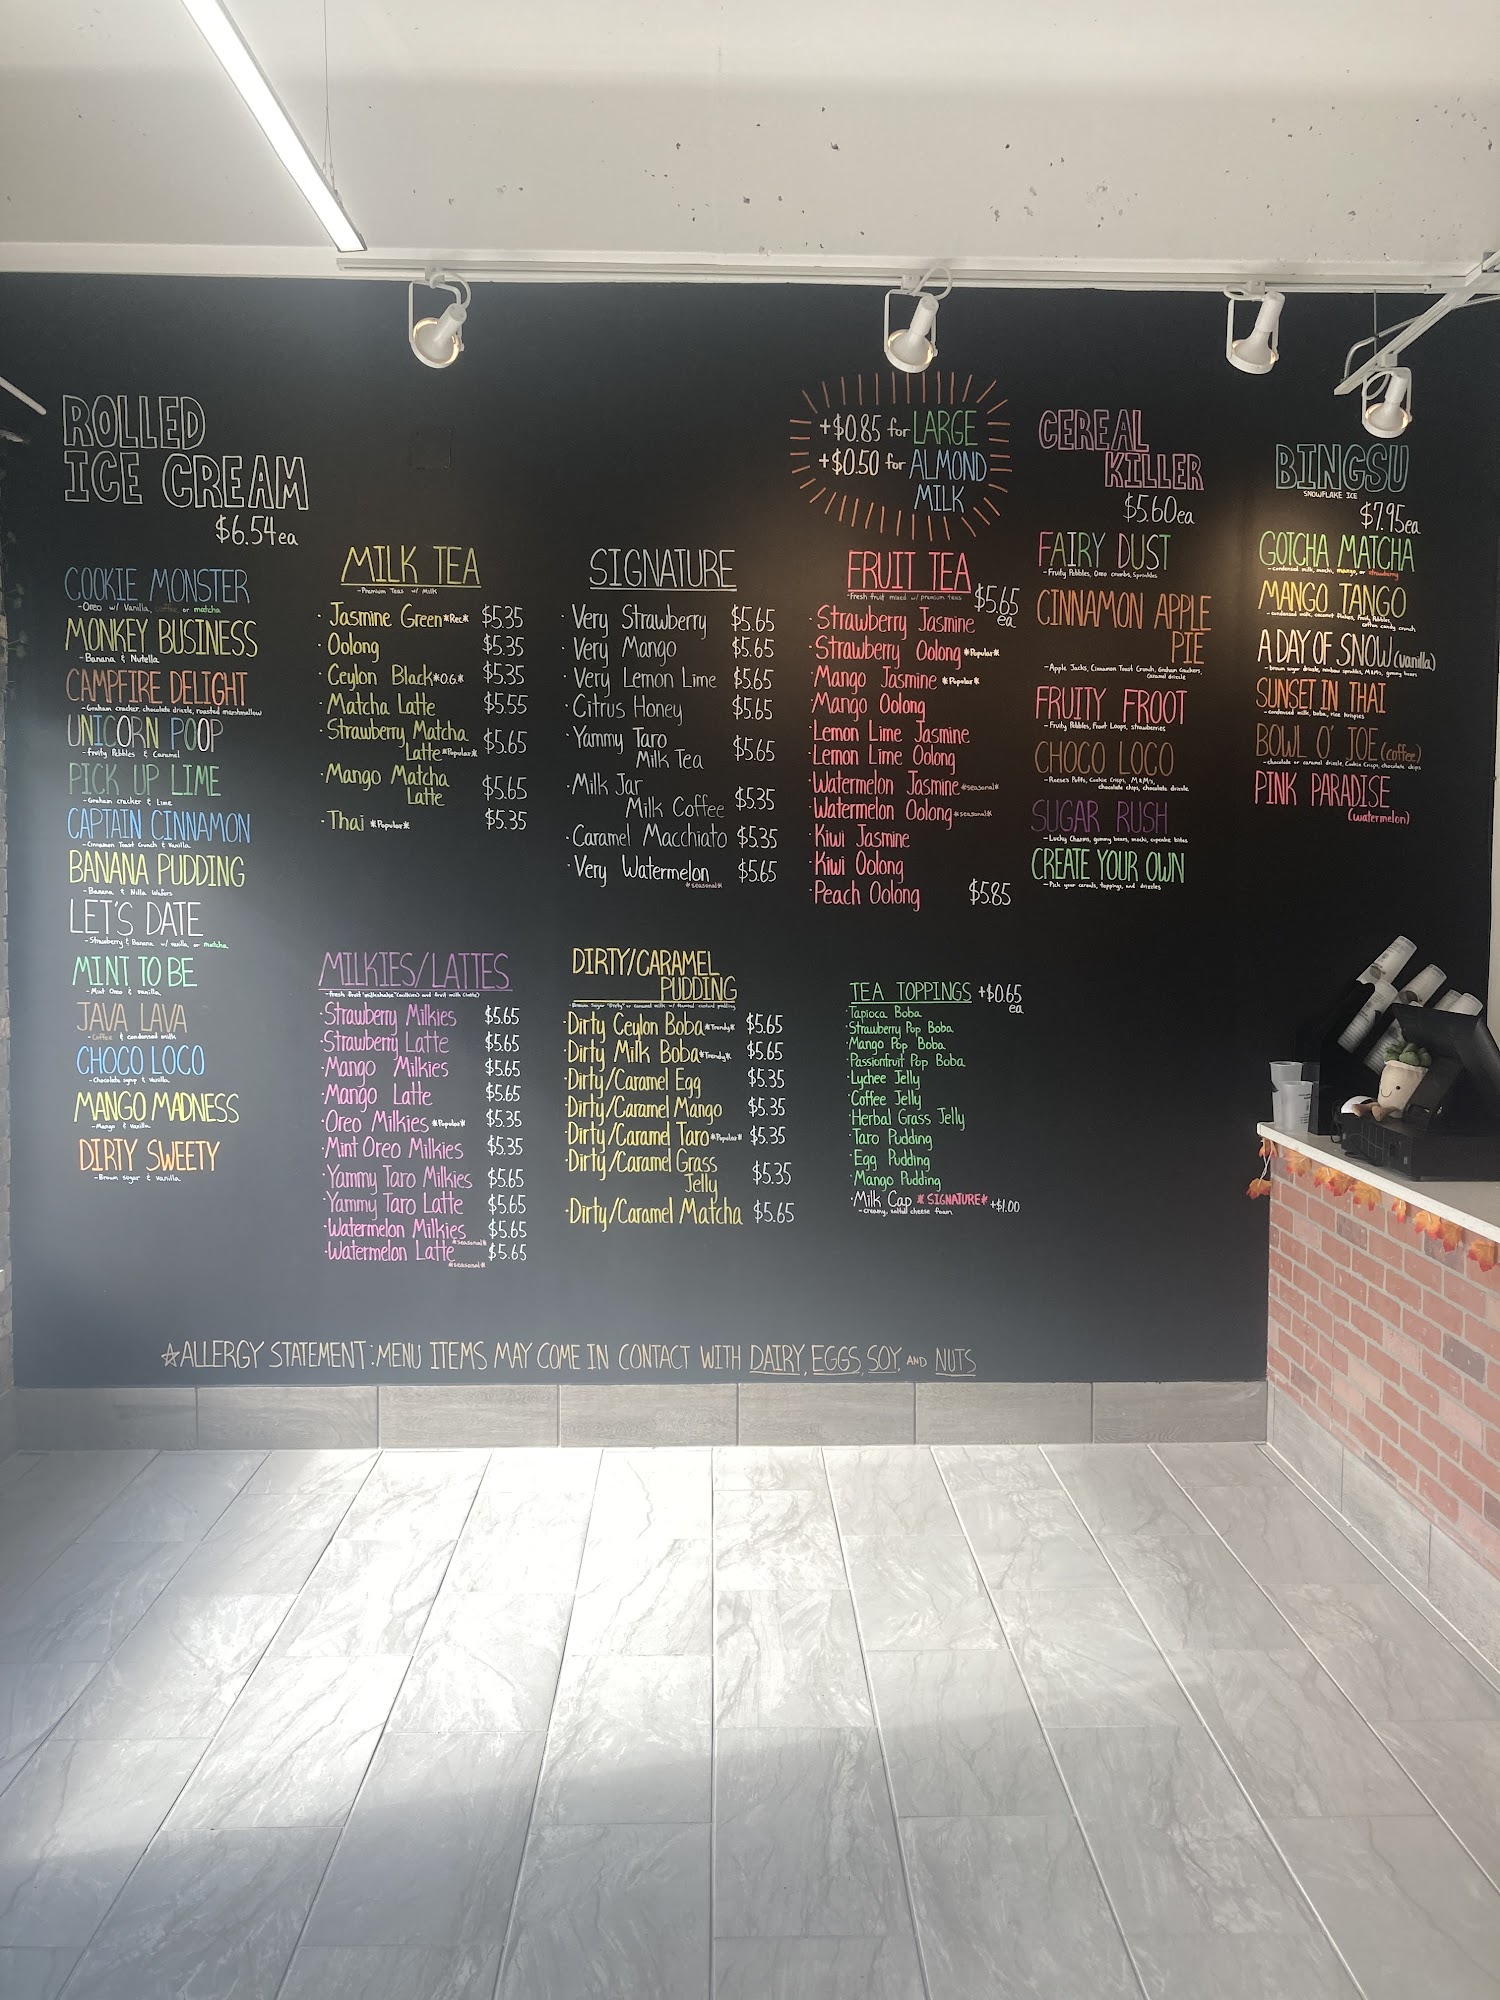 ROLLED
ICE CREAM
$6.54ea
COOKIE MONSTER
-Oreo w/ Vanilla, coffee, or matcha
MONKEY BUSINESS
-Banana & Nutella
CAMPFIRE DELIGHT
-Graham cracker, chocolate drizzle, roasted marshmallow
UNICORN POOP
-Fruity Pebbles & Caramel
PICK UP LIME
-Graham cracker & Lime
CAPTAIN CINNAMON
-Cinnamon Toast Crunch & Vanilla
BANANA PUDDING
-Banana & Nilla Wafers
LET'S DATE
-Strawberry & Banana w/ vanilla, or matcha
MINT TO BE
-Mint Oreo & vanilla
JAVA LAVA
-Coffee & condensed milk
CHOCO LOCO
-Chocolate syrup & Vanilla
MANGO MADNESS
-Mango & vanilla
DIRTY SWEETY
-Brown sugar & vanilla
MILK TEA
-Premium Teas w/ Milk
·Jasmine Green *Rec* $5.35
·Oolong $5.35
·Ceylon Black *O.G.* $5.35
·Matcha Latte $5.55
·Strawberry Matcha
Latte *Popular* $5.65
·Mango Matcha
Latte $5.65
·Thai *Popular* $5.35
SIGNATURE
·Very Strawberry $5.65
·Very Mango $5.65
·Very Lemon Lime $5.65
·Citrus Honey $5.65
·Yammy Taro
Milk Tea $5.65
·Milk Jar
Milk Coffee $5.35
·Caramel Macchiato $5.35
·Very Watermelon $5.65
*seasonal*
+$0.85 for LARGE
+$0.50 for ALMOND
MILK
FRUIT TEA
-fresh fruit mixed w/ premium teas
$5.65
ea
·Strawberry Jasmine
·Strawberry Oolong *Popular*
·Mango Jasmine *Popular*
·Mango Oolong
·Lemon Lime Jasmine
·Lemon Lime Oolong
·Watermelon Jasmine *seasonal*
·Watermelon Oolong *seasonal*
·Kiwi Jasmine
·Kiwi Oolong
·Peach Oolong $5.85
CEREAL
KILLER
$5.60ea
FAIRY DUST
-Fruity Pebbles, Oreo crumbs, Sprinkles
CINNAMON APPLE
PIE
-Apple Jacks, Cinnamon Toast Crunch, Graham crackers,
Caramel drizzle
FRUITY FROOT
-Fruity Pebbles, Froot Loops, strawberries
CHOCO LOCO
-Reese's Puffs, Cookie Crisps, M&M's,
chocolate chips, chocolate drizzle
SUGAR RUSH
-Lucky Charms, gummy bears, mochi, cupcake bites
CREATE YOUR OWN
-Pick your cereals, toppings, and drizzles
BINGSU
SNOWFLAKE ICE
$7.95ea
GOTCHA MATCHA
-condensed milk, mochi, mango, or strawberry
MANGO TANGO
-condensed milk, coconut flakes, Fruity Pebbles,
cotton candy crunch
A DAY OF SNOW (vanilla)
-brown sugar drizzle, rainbow sprinkles, M&M's, gummy bears
SUNSET IN THAI
-condensed milk, boba, rice krispies
BOWL O' JOE (coffee)
-chocolate or caramel drizzle, Cookie Crisps, chocolate chips
PINK PARADISE
(watermelon)
MILKIES/LATTES
-fresh fruit "milkshake" (milkies) and fruit milk (latte)
·Strawberry Milkies $5.65
·Strawberry Latte $5.65
·Mango Milkies $5.65
·Mango Latte $5.65
·Oreo Milkies *Popular* $5.35
·Mint Oreo Milkies $5.35
·Yammy Taro Milkies $5.65
·Yammy Taro Latte $5.65
·Watermelon Milkies $5.65
*seasonal*
·Watermelon Latte $5.65
*seasonal*
DIRTY/CARAMEL
PUDDING
-Brown Sugar "Dirty" or caramel milk w/ custard pudding
·Dirty Ceylon Boba *Trendy* $5.65
·Dirty Milk Boba *Trendy* $5.65
·Dirty/Caramel Egg $5.35
·Dirty/Caramel Mango $5.35
·Dirty/Caramel Taro *Popular* $5.35
·Dirty/Caramel Grass
Jelly $5.35
·Dirty/Caramel Matcha $5.65
TEA TOPPINGS +$0.65
ea
·Tapioca Boba
·Strawberry Pop Boba
·Mango Pop Boba
·Passionfruit Pop Boba
·Lychee Jelly
·Coffee Jelly
·Herbal Grass Jelly
·Taro Pudding
·Egg Pudding
·Mango Pudding
·Milk Cap *SIGNATURE* +$1.00
-creamy, salted cheese foam
☆ALLERGY STATEMENT: MENU ITEMS MAY COME IN CONTACT WITH DAIRY, EGGS, SOY, AND NUTS